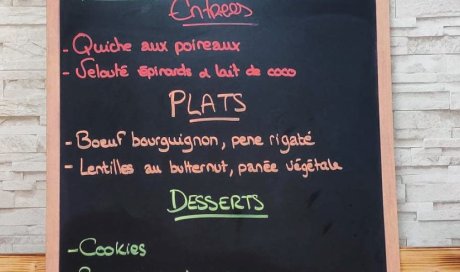 Entrées
- Quiche aux poireaux
- Velouté épinards & lait de coco
PLATS
- Boeuf bourguignon, pene rigaté
- Lentilles au butternut, panée végétale
DESSERTS
- Cookies